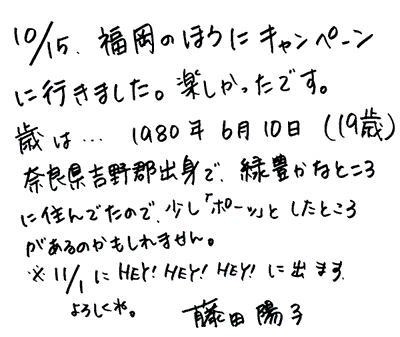 10/15. 福岡のほうにキャンペーン
に行きました。楽しかったです。
歳は… 1980年 6月10日 (19歳)
奈良県吉野郡出身で、緑豊かなところ
に住んでたので、少し「ボーッ」としたところ
があるのかもしれません。
※ 11/1 に HEY! HEY! HEY! に出ます.
よろしくね。
藤田陽子